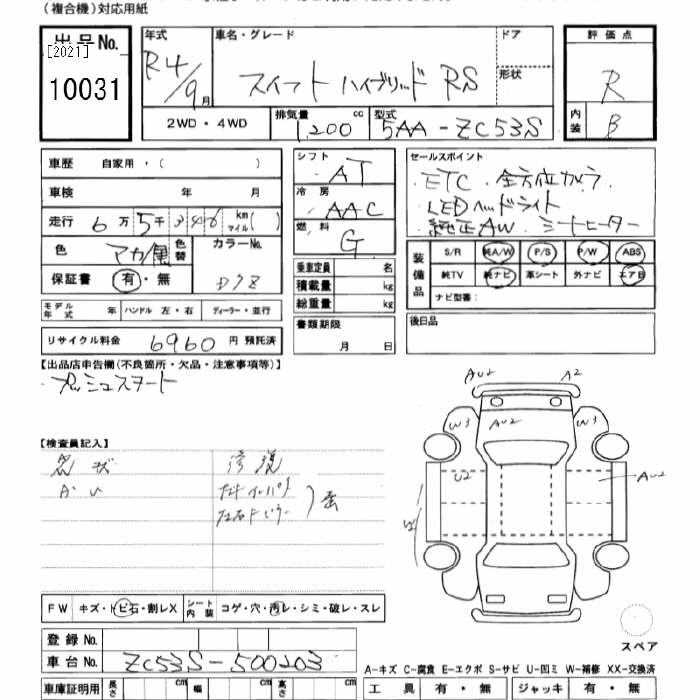 (複合機)対応用紙
出品No. [2021] 10031
年式 R4/9月
車名・グレード スイフト ハイブリッド RS
ドア
形状
評価点 R
内装 B
2WD・4WD
排気量 1,200 cc
型式 5AA-ZC53S
車歴 自家用・( )
車検 年 月
走行 6万5千346km マイル( )
色 色替 カラーNo.
保証書 有・無
モデル年式 年 ハンドル 左・右 ディーラー・並行
リサイクル料金 6960 円 預託済
シフト AT
冷房 AAC
燃料 G
乗車定員 名
積載量 kg
総重量 kg
書類期限
月 日
セールスポイント
・ETC ・全方位カメラ
・LEDヘッドライト
・純正AW ・シートヒーター
装備品
S/R 純A/W P/S P/W ABS
純TV 純ナビ 革シート 外ナビ エアB
ナビ型番:
後日品
【出品店申告欄(不良箇所・欠品・注意事項等)】
・プッシュスタート
【検査員記入】
修復
AU2 A2
W3 AU2 W3
U2 AU2
FW キズ・トビ石・割レX シート内装 コゲ・穴・汚レ・シミ・破レ・スレ
登録No.
車台No. ZC53S-500203
車庫証明用 長さ cm 幅 cm 高さ cm
スペア
A-キズ C-腐食 E-エクボ S-サビ U-凹ミ W-補修 XX-交換済
工具 有・無 ジャッキ 有・無